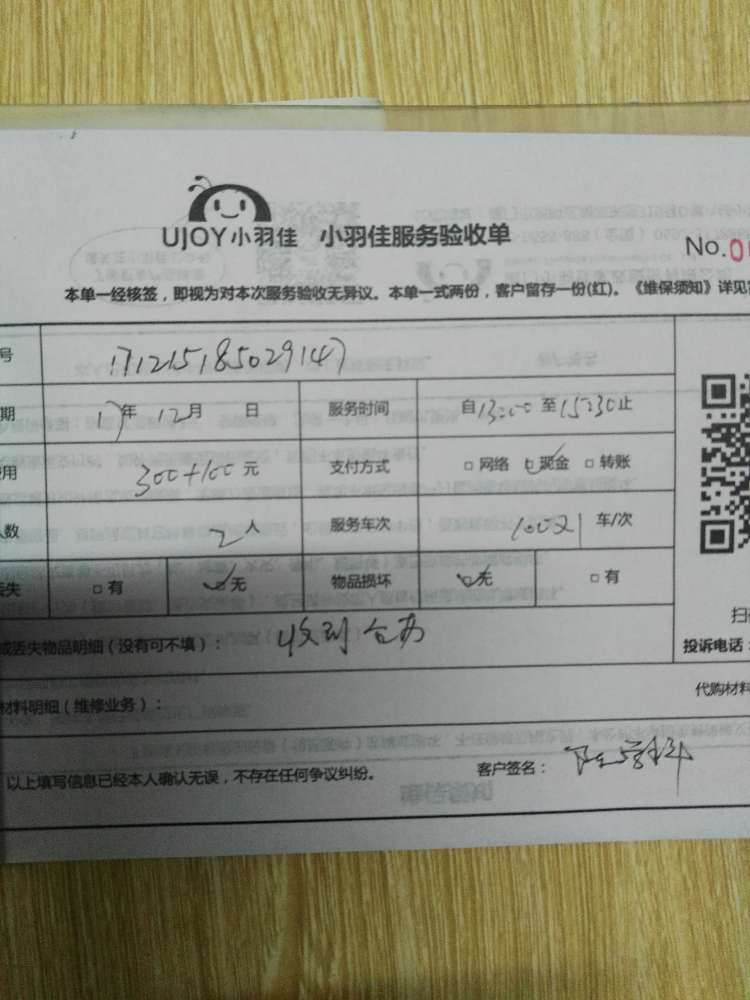 UJOY小羽佳 小羽佳服务验收单
No.0
本单一经核签，即视为对本次服务验收无异议。本单一式两份，客户留存一份(红)。《维保须知》详见
号 171215185029147
期 17年 12月 日 服务时间 自13:00至15:30止
费用 300+100元 支付方式 □网络 ☑现金 □转账
人数 2人 服务车次 10021 车/次
丢失 □有 ☑无 物品损坏 ☑无 □有
或丢失物品明细（没有可不填）： 收到
扫
投诉电话：
材料明细（维修业务）： 代购材料
以上填写信息已经本人确认无误，不存在任何争议纠纷。 客户签名：